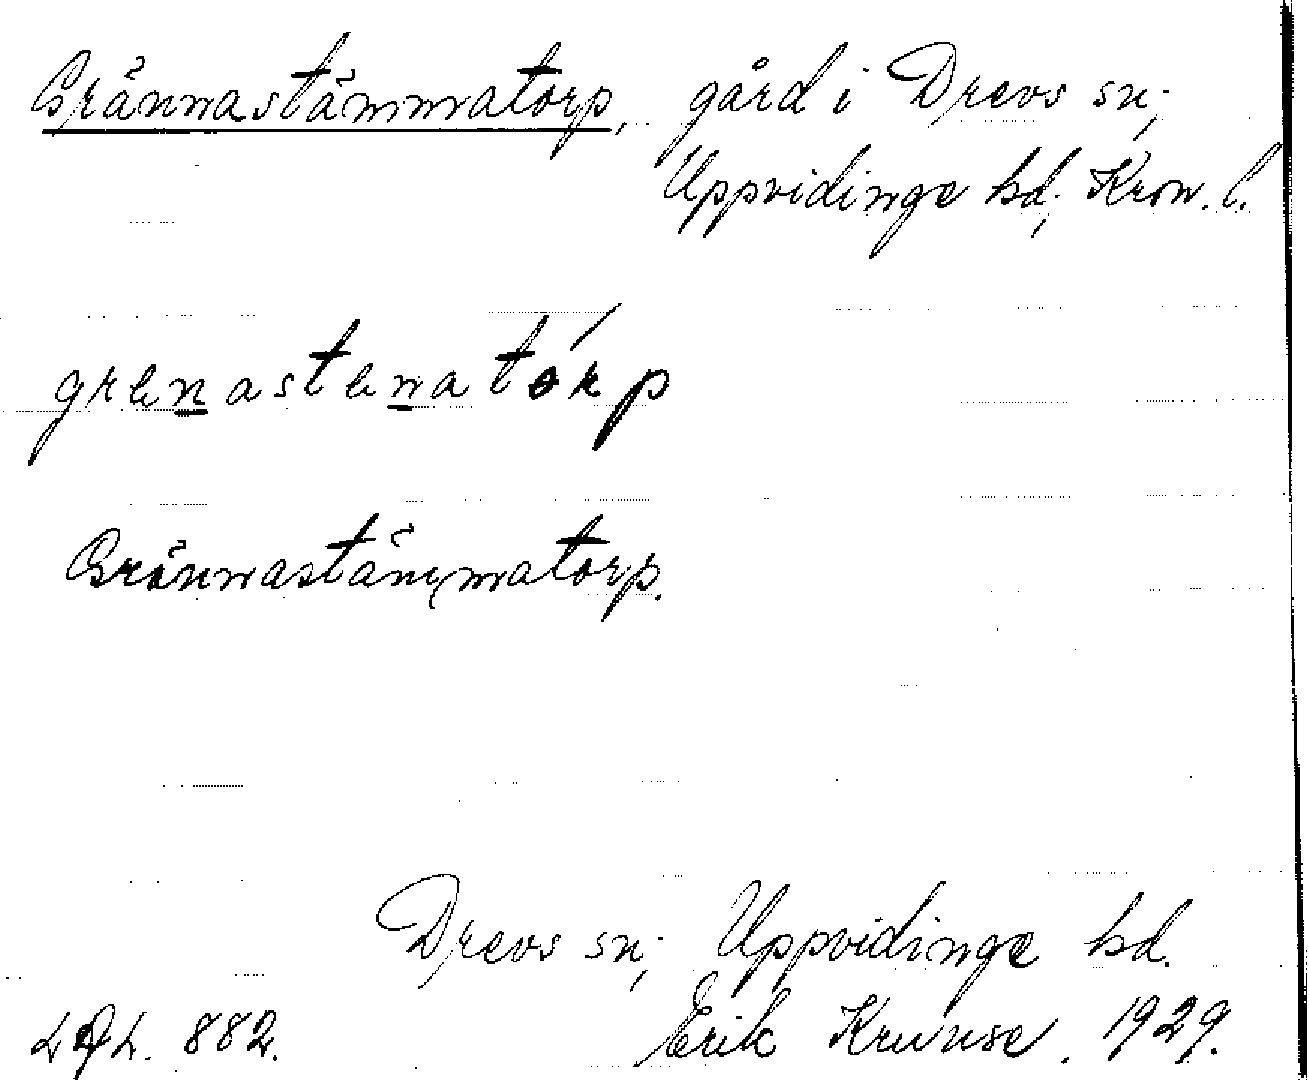 Grännastämmatorp, gård i Drevs sn;
Uppvidinge hd; Kron. l.
grenastenatórp
Grännastämmatorp.
Drevs sn; Uppvidinge hd.
Erik Kruuse. 1929.
882.